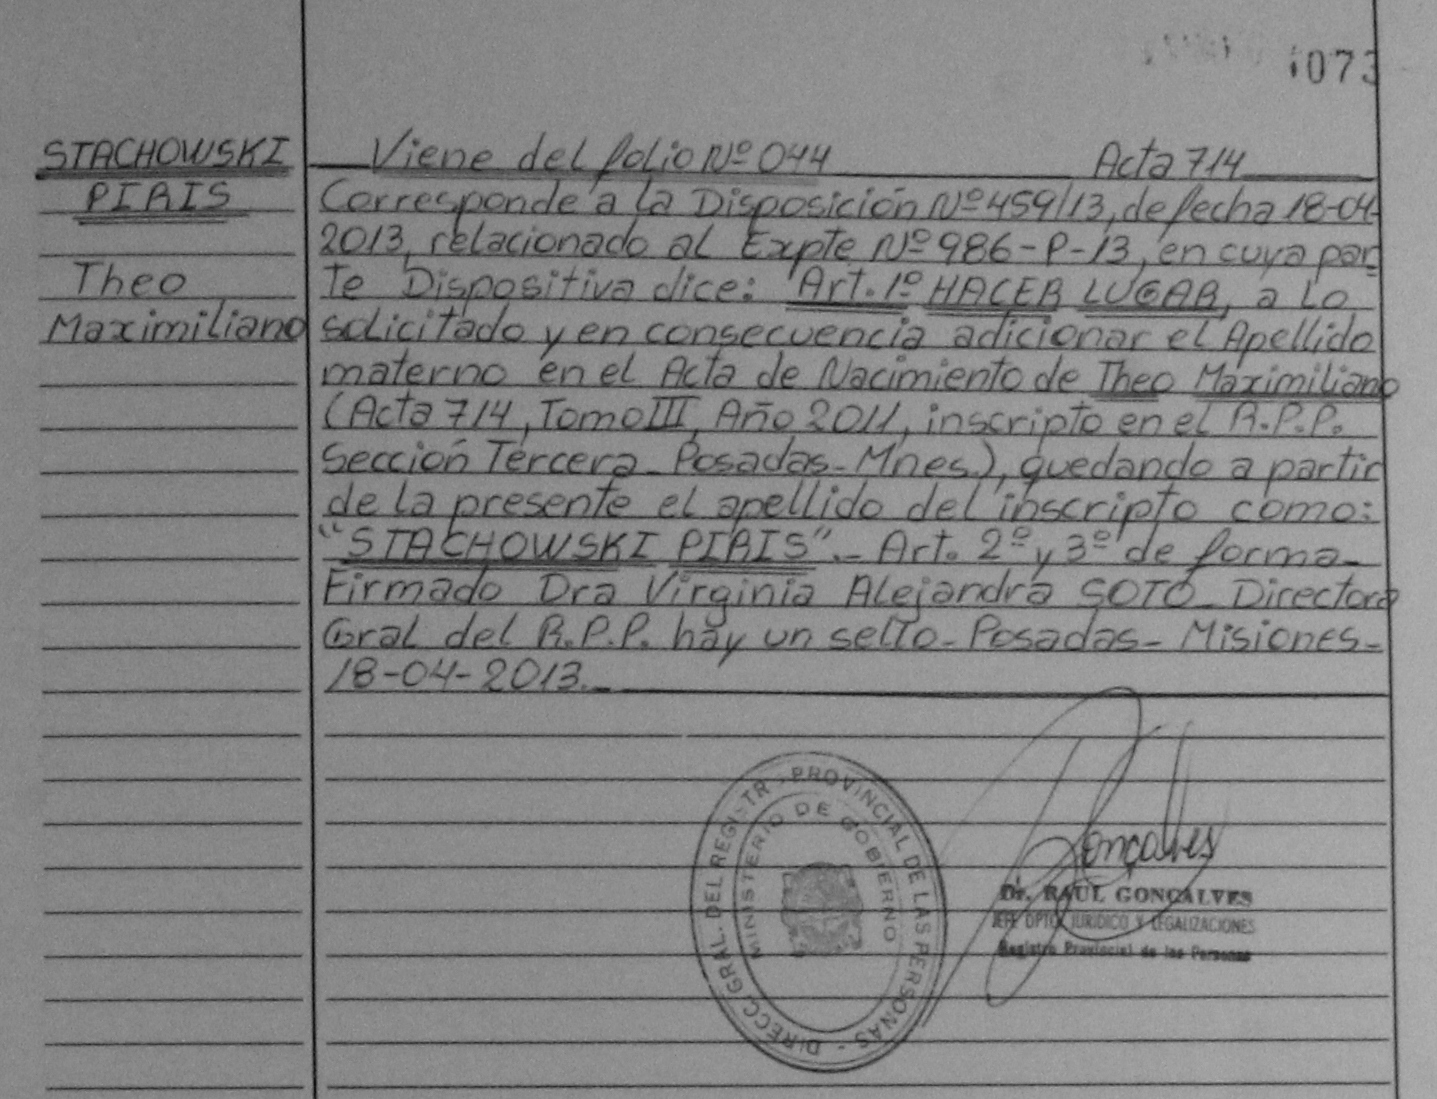 1073
STACHOWSKI
PIRIS
Theo
Maximiliano
Viene del folio Nº 044 Acta 714
Corresponde a la Disposición Nº 459/13, de fecha 18-04-
2013, relacionado al Expte Nº 986-P-13, en cuya par-
te Dispositiva dice: Art. 1º HACER LUGAR, a lo
solicitado y en consecuencia adicionar el Apellido
materno en el Acta de Nacimiento de Theo Maximiliano
(Acta 714, Tomo III, Año 2011, inscripto en el R.P.P.
Sección Tercera - Posadas - Mnes.), quedando a partir
de la presente el apellido del inscripto como:
"STACHOWSKI PIRIS".- Art. 2º y 3º de forma-
Firmado Dra Virginia Alejandra SOTO - Directora
Gral del R.P.P. hay un sello - Posadas - Misiones -
18-04-2013.-
DIRECC. GRAL. DEL REGISTR. PROVINCIAL DE LAS PERSONAS -
MINISTERIO DE GOBIERNO
Gonçalves
Dr. RAUL GONÇALVES
JEFE DPTO. JURIDICO Y LEGALIZACIONES
Registro Provincial de las Personas